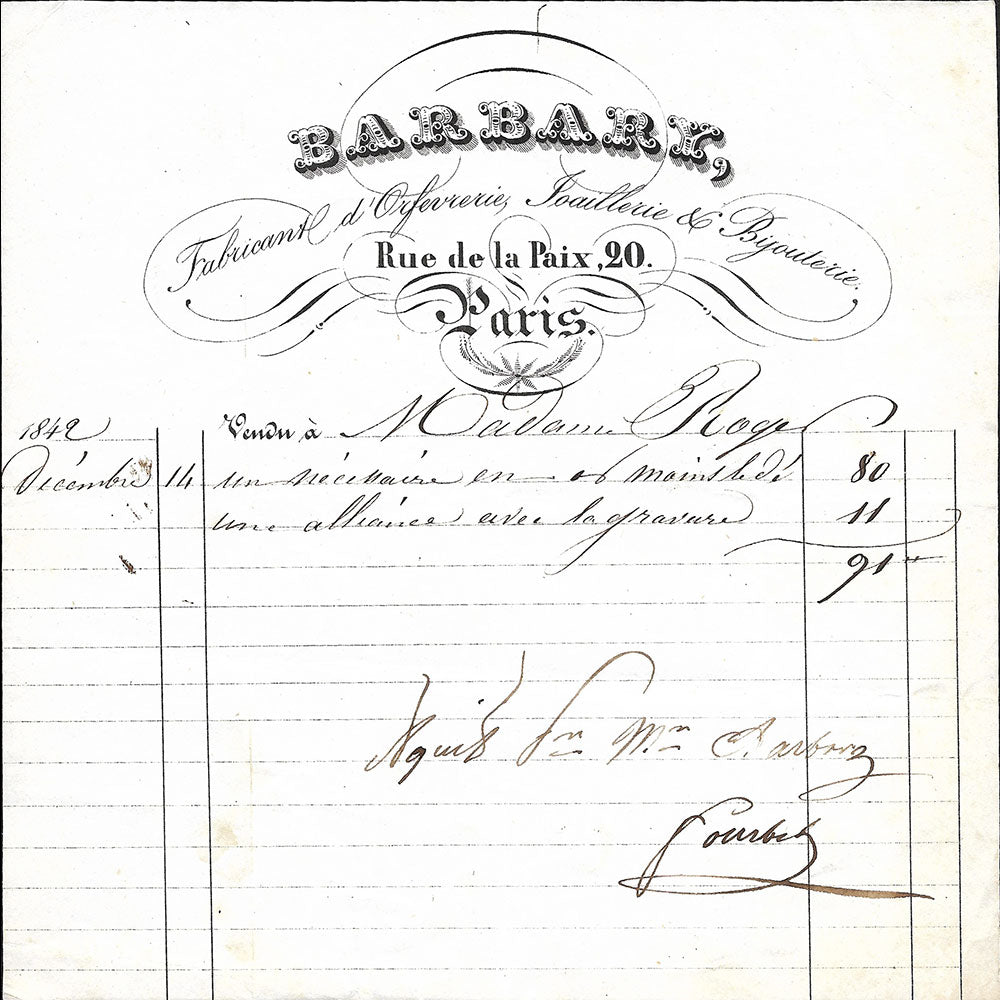 BARBARY,
Fabricant d'Orfevrerie, Joaillerie & Bijouterie.
Rue de la Paix, 20.
Paris.
1842 Vendu à Madame Roger
Décembre 14 un nécessaire en or moins le dé 80
une alliance avec la gravure 11
91 "
Aquit Pr Mr Barbary